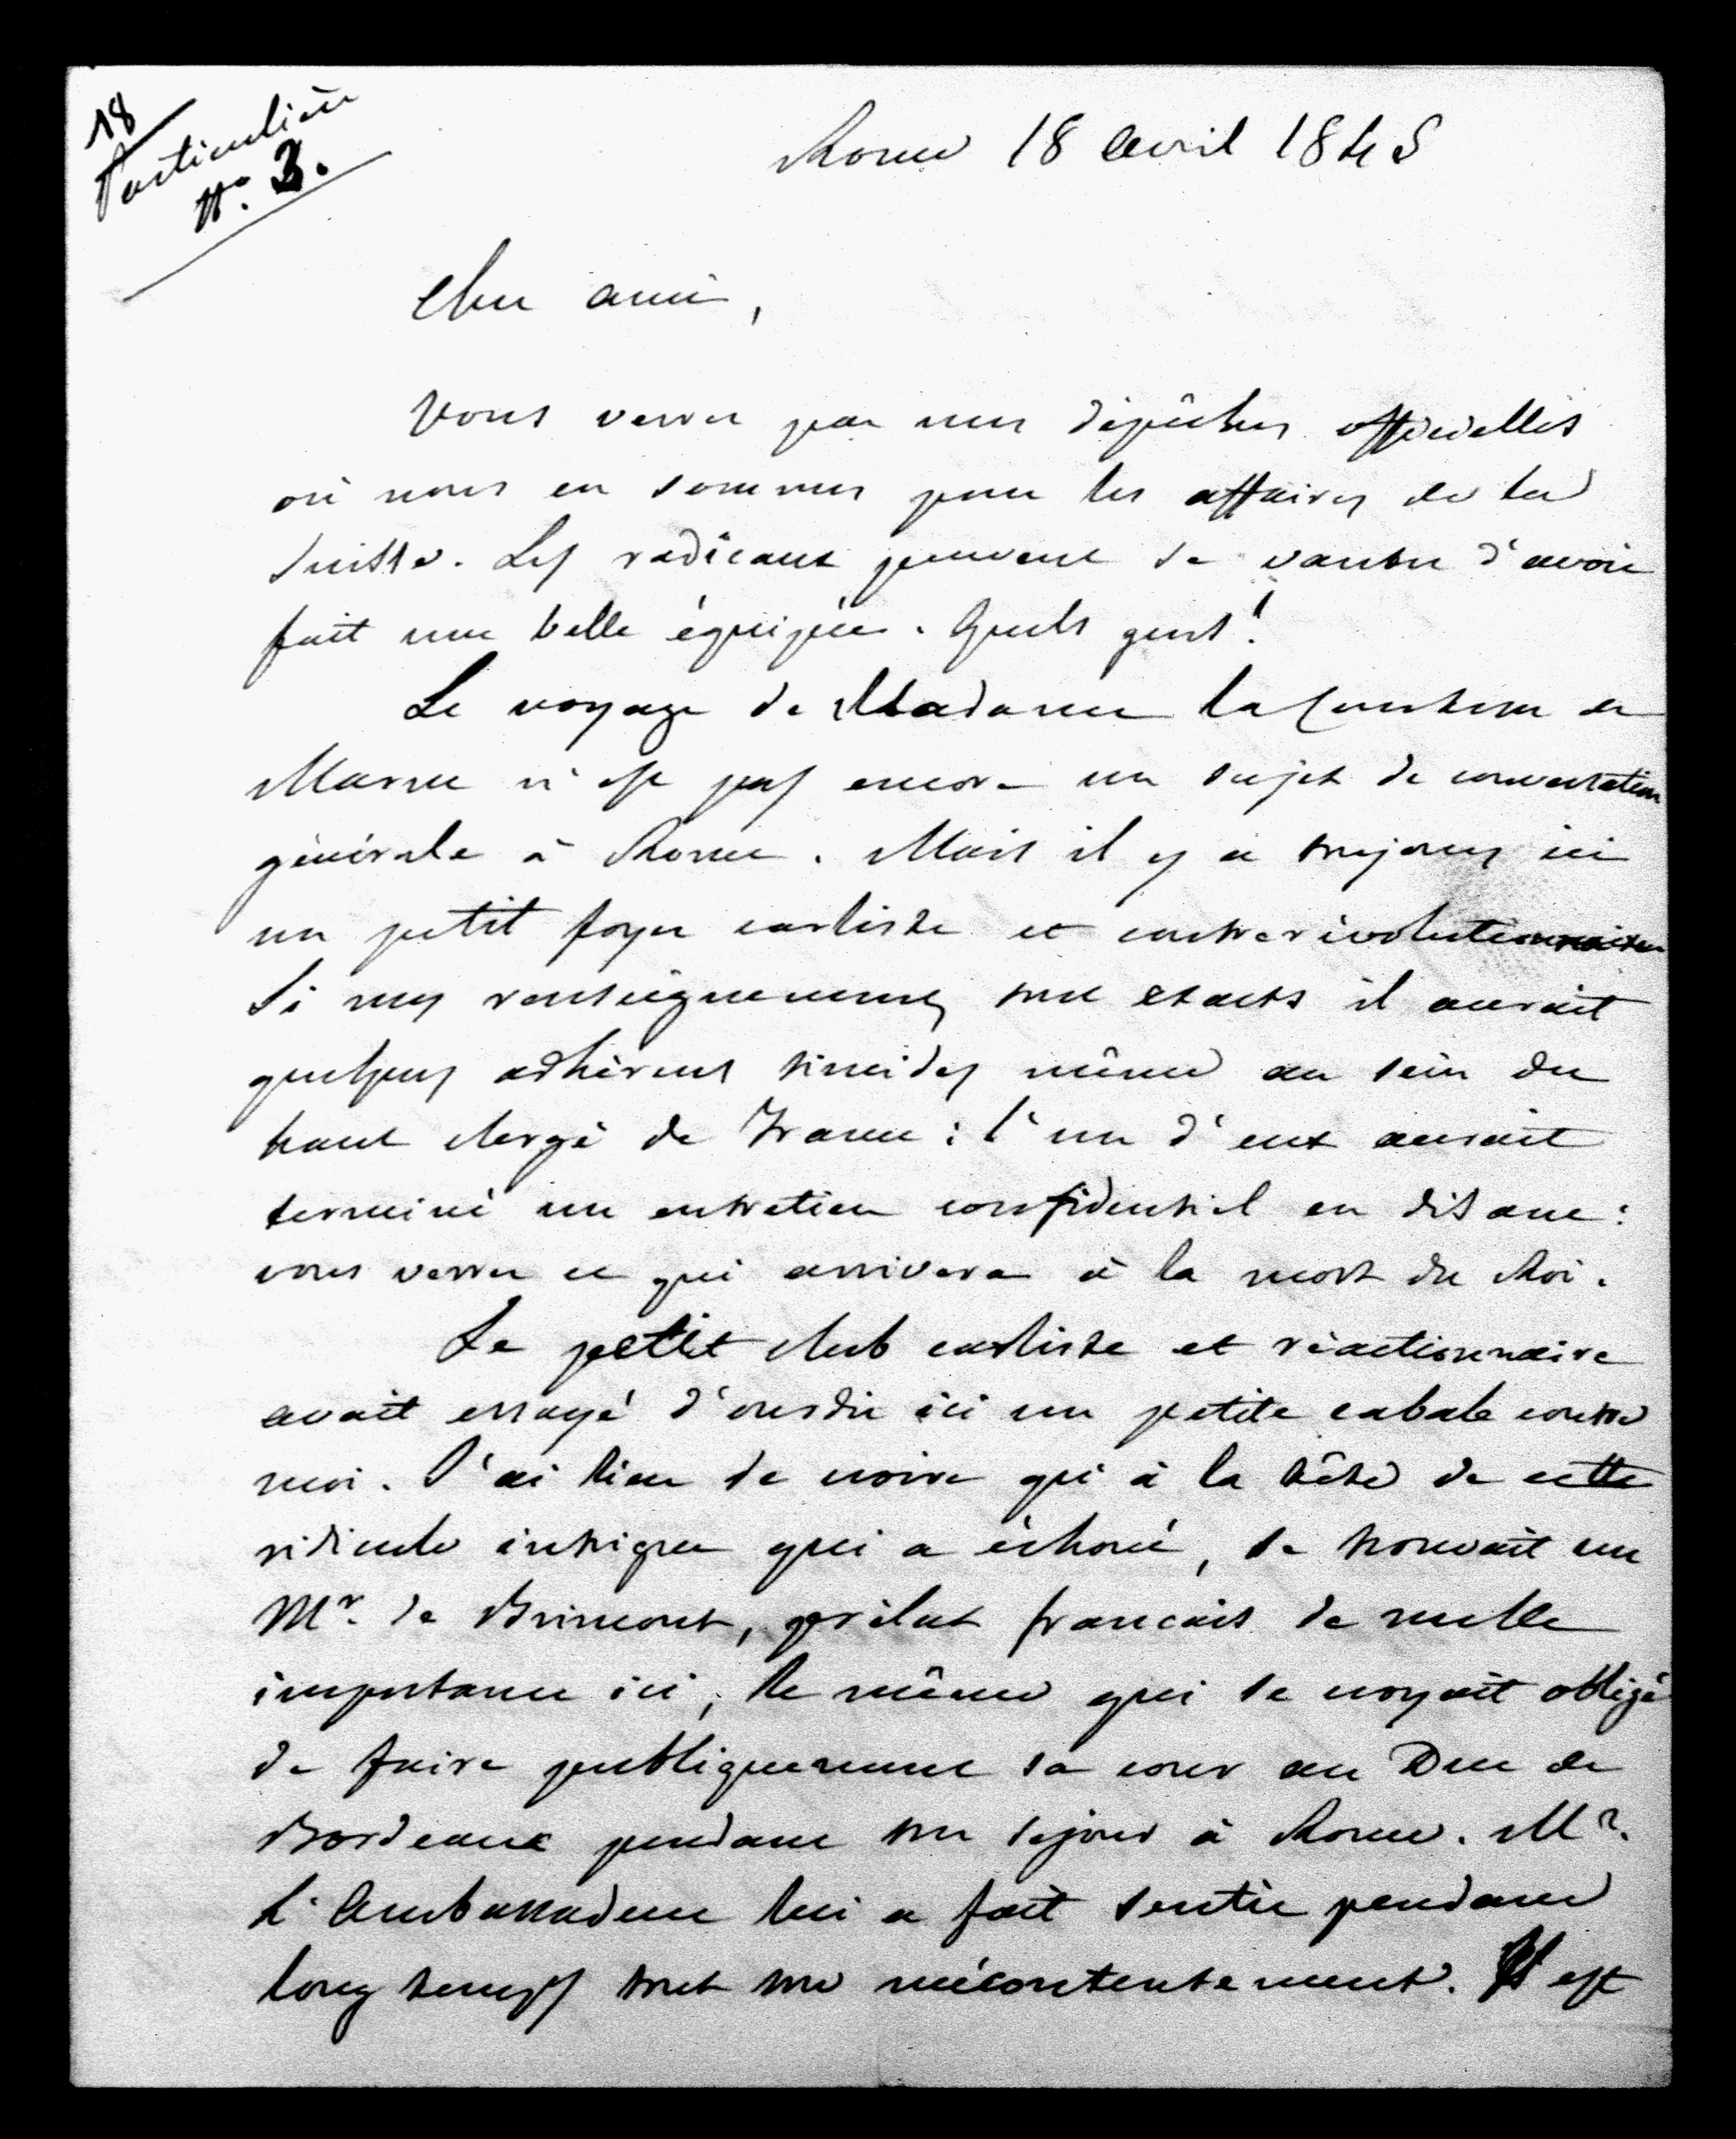 18
Particulière
No. 3.
Rome 18 Avril 1845
Cher ami,
Vous verrez par mes dépêches officielles
où nous en sommes pour les affaires de la
Suisse. Les radicaux peuvent se vanter d'avoir
fait une belle équipée. Quels gens!
Le voyage de Madame la Comtesse de
Marne n'est pas encore un sujet de conversation
générale à Rome. Mais il y a toujours ici
un petit foyer carliste et contrerévolutionnaire
Si mes renseignements sont exacts il aurait
quelques adhérens timides même au sein du
haut clergé de France: l'un d'eux aurait
terminé un entretien confidentiel en disant:
vous verrez ce qui arrivera à la mort du Roi.
Le petit club carliste et réactionnaire
avait essayé d'ourdir ici un petite cabale contre
moi. J'ai lieu de croire qu'à la tête de cette
ridicule intrigue qui a échoué, se trouvait un
Mr. de Brimont, prélat français de nulle
importance ici, le même qui se croyait obligé
de faire publiquement sa cour au Duc de
Bordeaux pendant son séjour à Rome. Mr.
L'Ambassadeur lui a fait sentir pendant
long temps tout son mécontentement. Il est